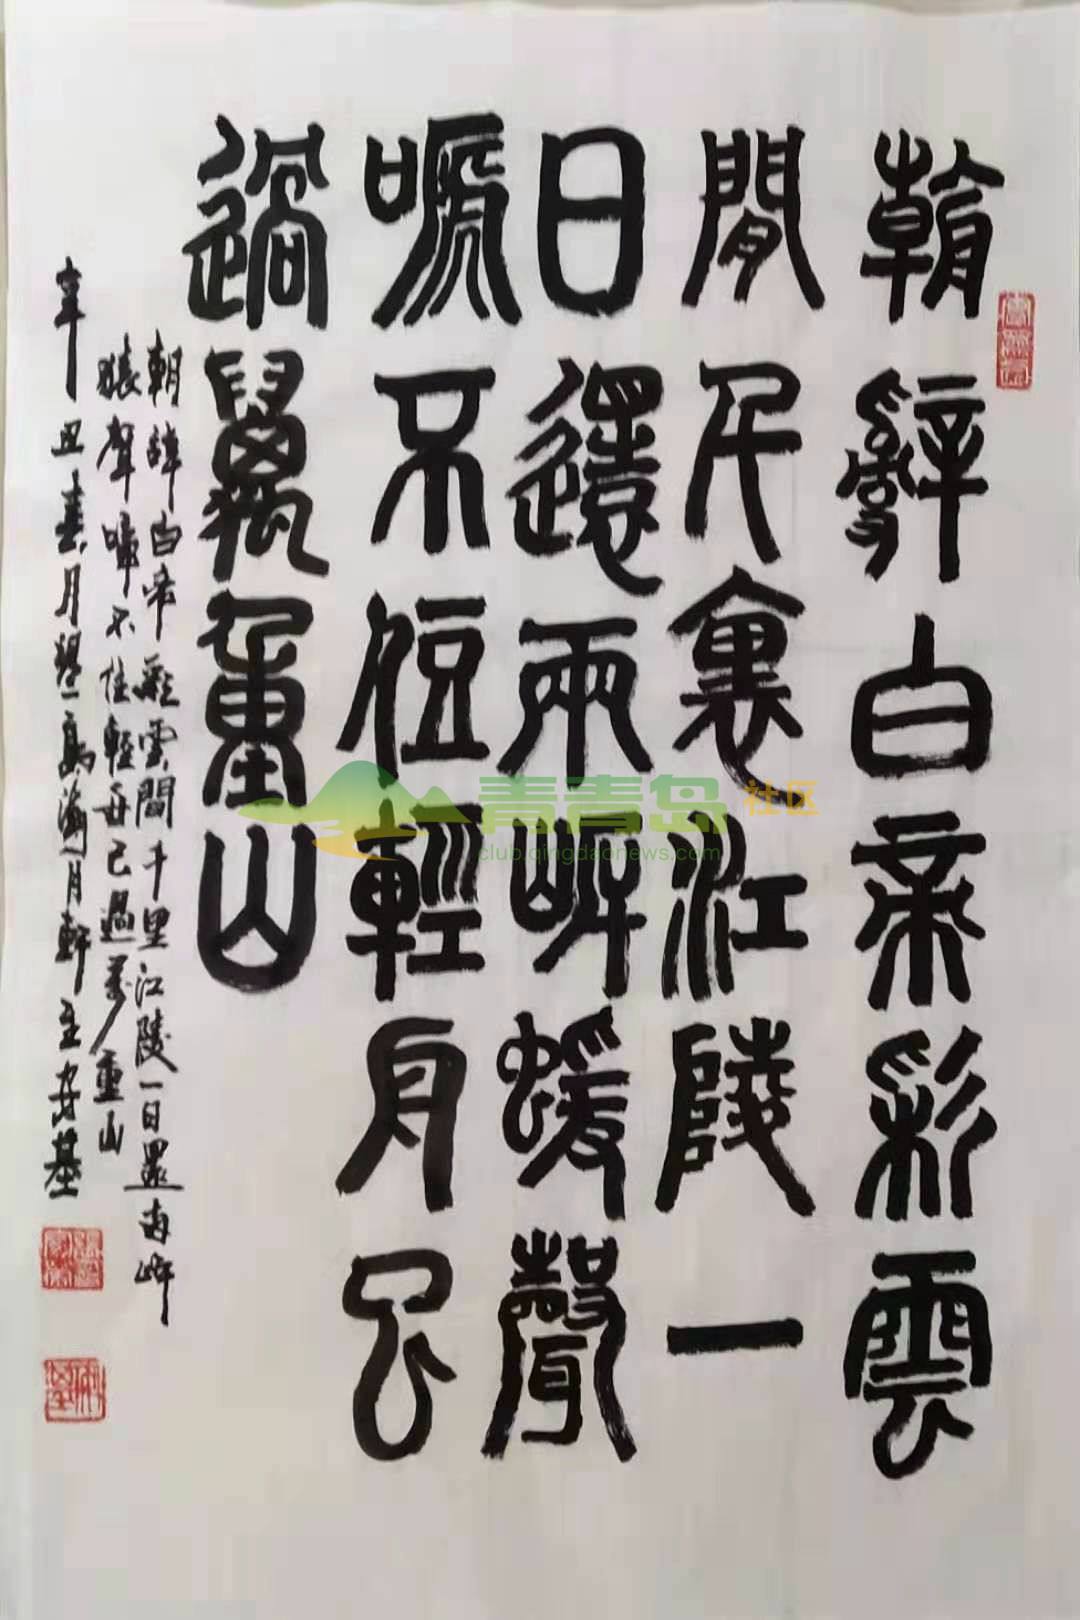 朝辭白帝彩雲
間千里江陵一
日還兩岸猨聲
嗁不住輕舟已
過萬重山
朝辭白帝彩雲間千里江陵一日還兩岸
猿聲啼不住輕舟已過萬重山
辛丑春月
青青岛社区
club.qingdaonews.com